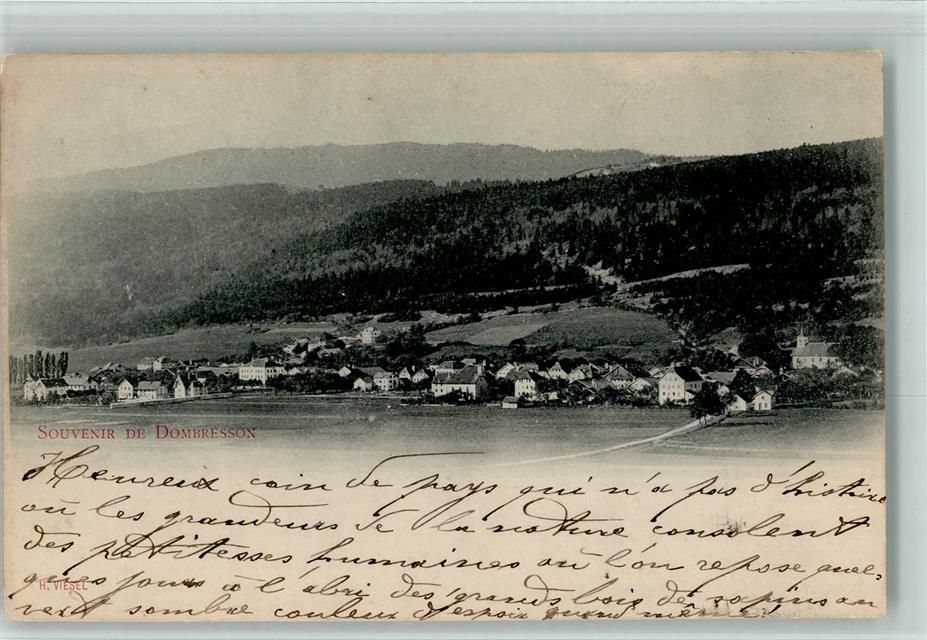 SOUVENIR DE DOMBRESSON
Heureux coin de pays qui n'a pas d'histoire
où les grandeurs de la nature consolent
des petitesses humaines où l'on repose quel-
ques jours à l'abri des grands bois de sapins au
vert sombre couleur d'espoir quand même!
H. VIESEL